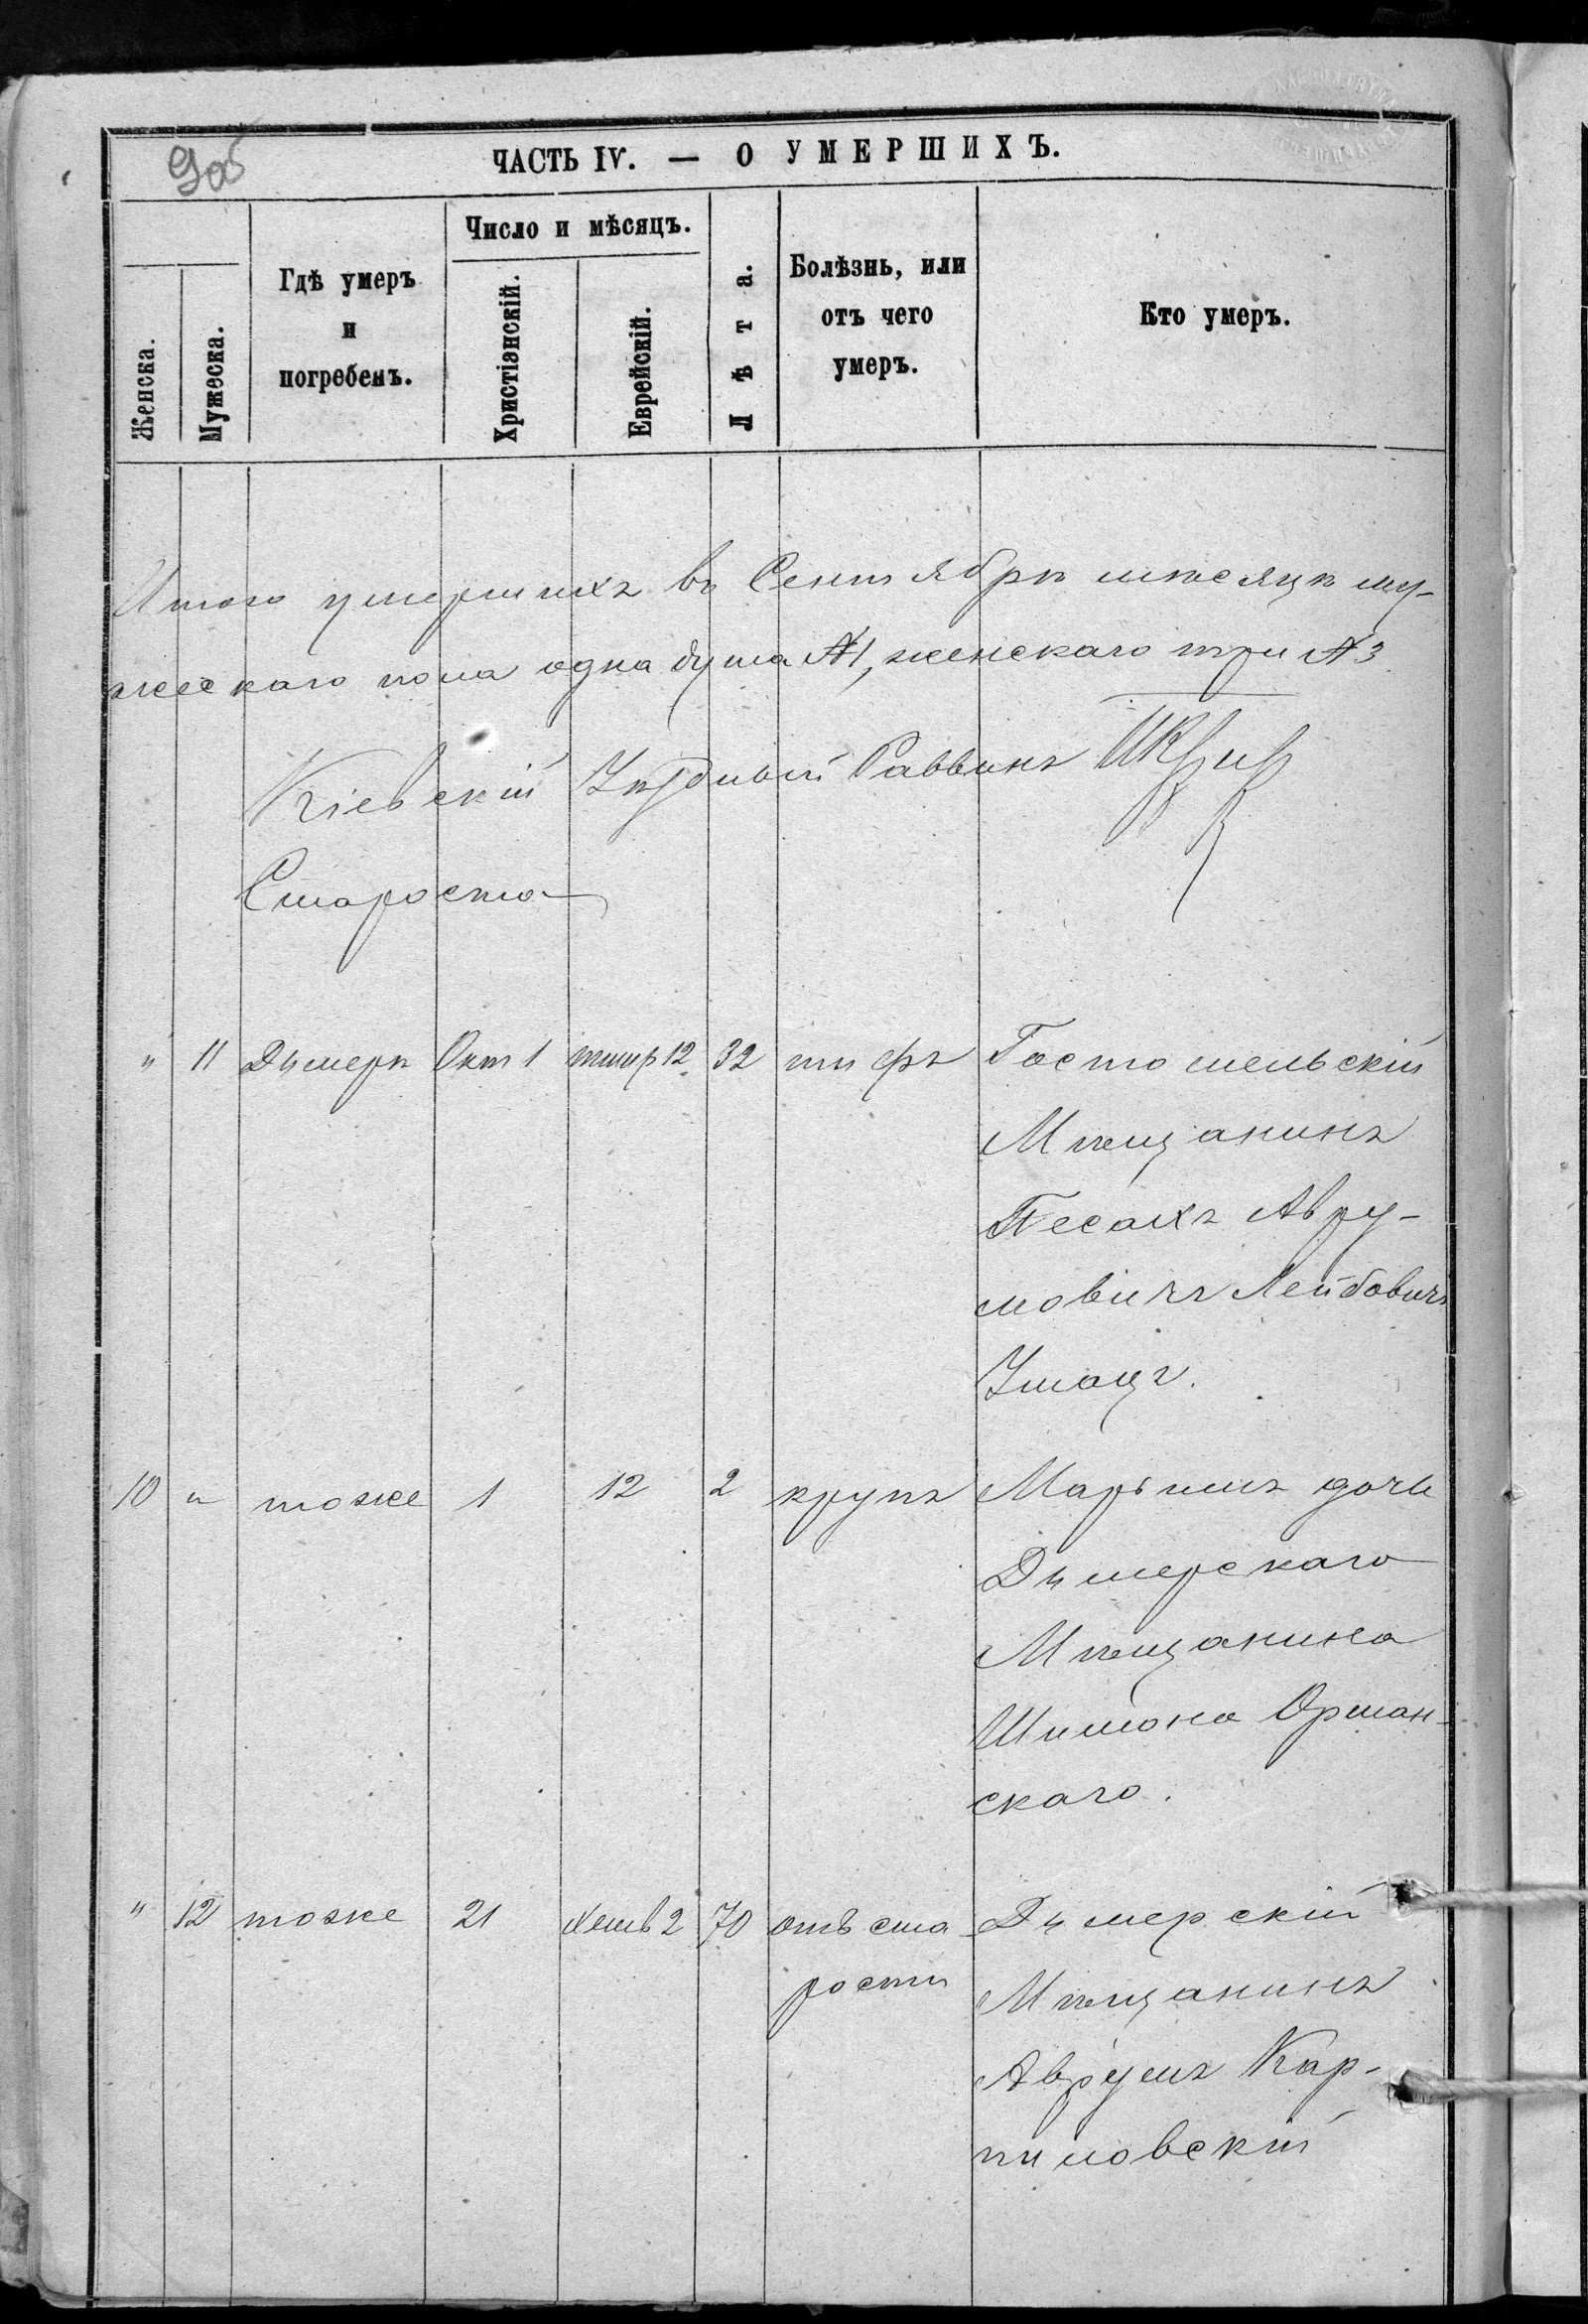 9об
ЧАСТЬ IV. — О УМЕРШИХЪ.
Женска.
Мужеска.
Гдѣ умеръ
и
погребенъ.
Число и мѣсяцъ.
Христіанскій.
Еврейскій.
Лѣта.
Болѣзнь, или
отъ чего
умеръ.
Кто умеръ.
Итого умершихъ въ Сентябрѣ мѣсяцѣ му-
жескаго пола одна душа №1, женскаго три №3
Кіевскій Уѣздный Раввинъ
Староста
" 11 Дымерѣ Окт 1 тишр 12 32 тифъ Гостомельскій
Мѣщанинъ
Песахъ Авру-
мовичъ Лейбовичъ
10 " тоже 1 12 2 крупъ Марьимъ дочь
Дымерскаго
Мѣщанина
Шимона Орман-
скаго.
" 12 тоже 21 Хешв 2 70 отъ ста Дымерскій
рости Мѣщанинъ
Аврумъ Кар-
пиловскій